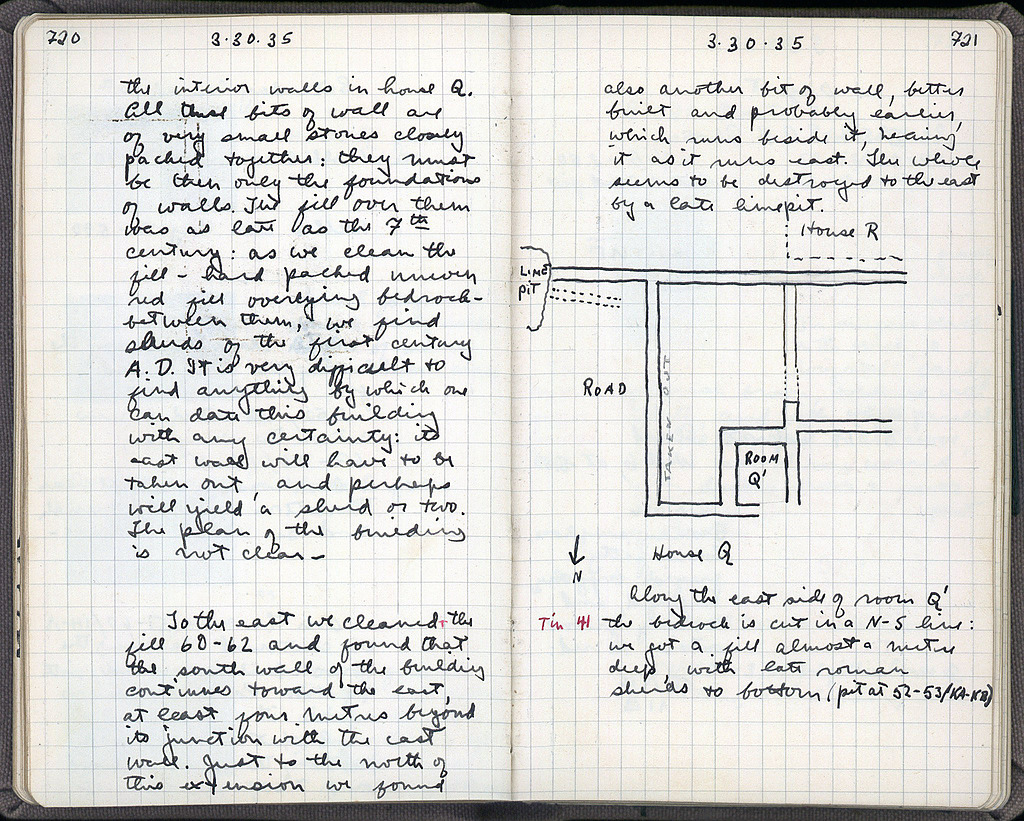 720
3.30.35
the interior walls in house Q.
All these bits of wall are
of very small stones closely
packed together: they must
be then only the foundations
of walls. The fill over them
was as late as the 7th
century: as we clean the
fill - hard packed uneven
red fill overlying bedrock -
between them, we find
sherds of the first century
A.D. It is very difficult to
find anything by which one
can date this building
with any certainty: its
east wall will have to be
taken out, and perhaps
will yield a sherd or two.
The plan of the building
is not clear -
To the east we cleaned the
fill 60-62 and found that
the south wall of the building
continues toward the east,
at least four metres beyond
its junction with the east
wall. Just to the north of
this extension we found
3.30.35
721
also another bit of wall, better
built and probably earlier,
which runs beside it, nearing
it as it runs east. The whole
seems to be destroyed to the east
by a late limepit.
House R
LIME
pit
ROAD
TAKEN OUT
ROOM
Q'
N
House Q
Along the east side of room Q'
Tin 41 the bedrock is cut in a N-S line:
we got a fill almost a metre
deep, with late roman
sherds to bottom (pit at 52-53/KA-KB)